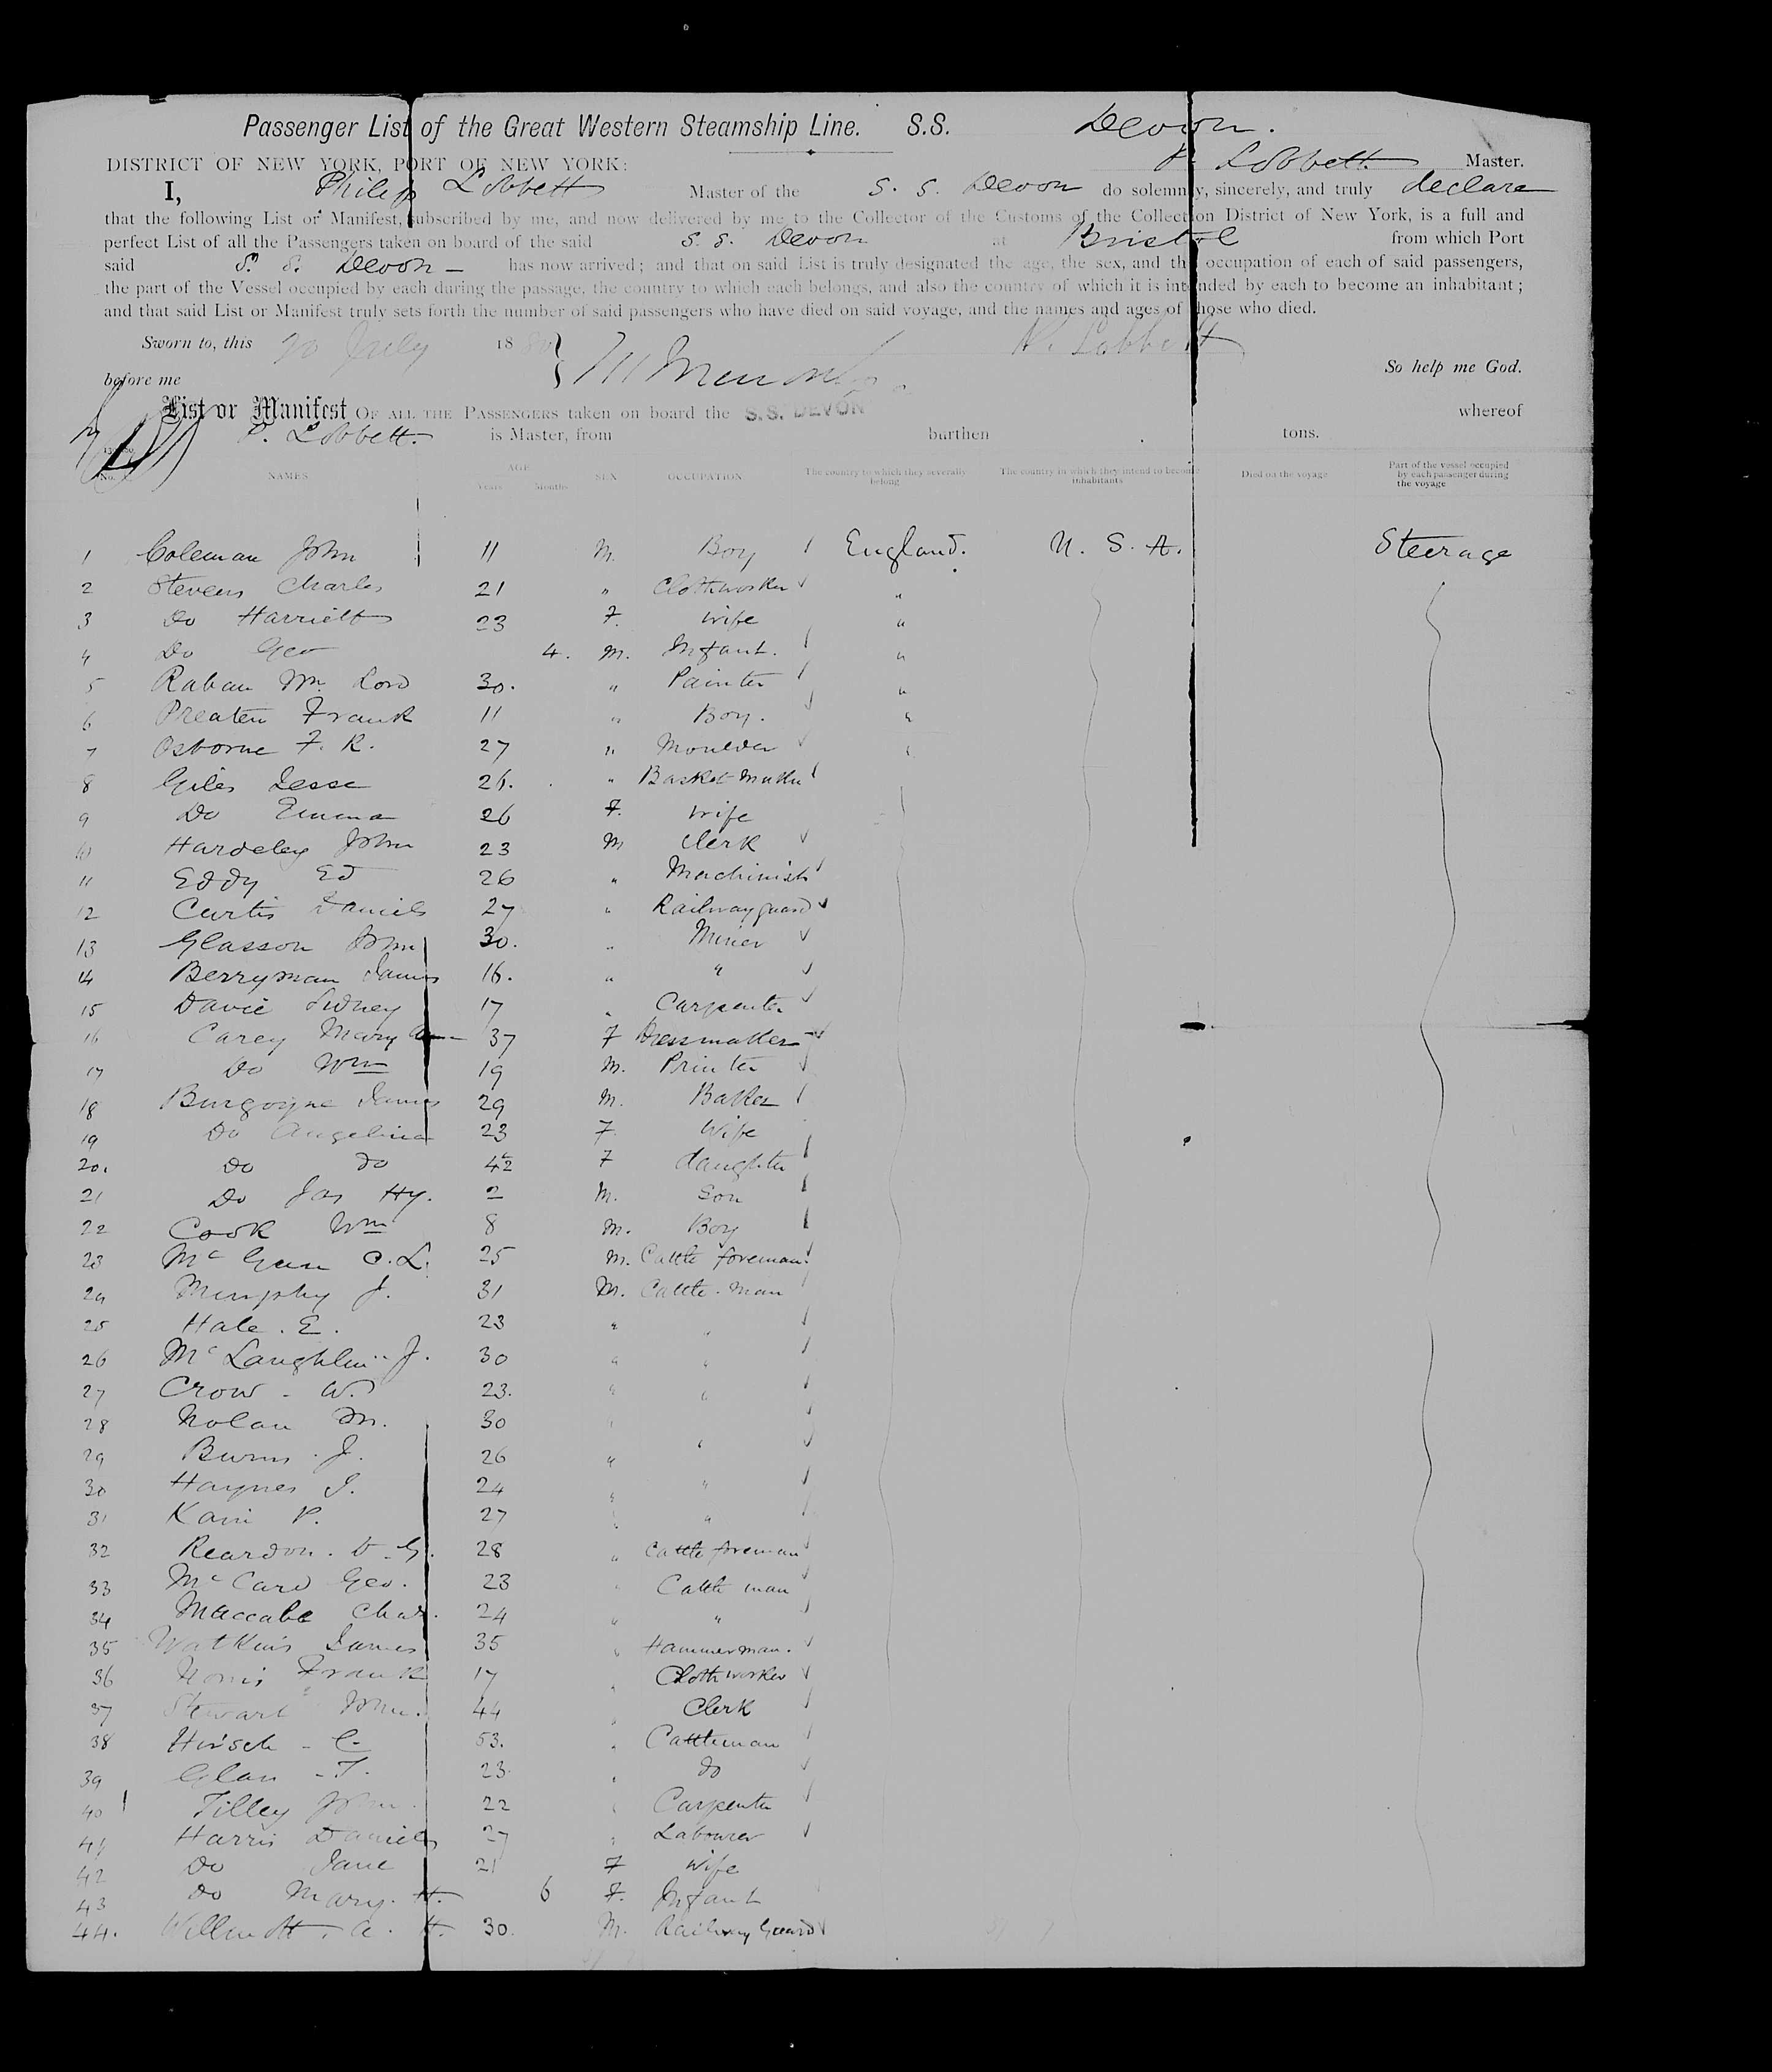 Passenger List of the Great Western Steamship Line. S.S. Devon.
P. Lobbett Master.
DISTRICT OF NEW YORK, PORT OF NEW YORK:
I, Philip Lobbett Master of the S. S. Devon do solemnly, sincerely, and truly declare
that the following List or Manifest, subscribed by me, and now delivered by me to the Collector of the Customs of the Collection District of New York, is a full and
perfect List of all the Passengers taken on board of the said S. S. Devon at Bristol from which Port
said S. S. Devon — has now arrived; and that on said List is truly designated the age, the sex, and the occupation of each of said passengers,
the part of the Vessel occupied by each during the passage, the country to which each belongs, and also the country of which it is intended by each to become an inhabitant;
and that said List or Manifest truly sets forth the number of said passengers who have died on said voyage, and the names and ages of those who died.
Sworn to, this 20 July 18 P. Lobbett
before me So help me God.
List or Manifest OF ALL THE PASSENGERS taken on board the S.S. DEVON whereof
P. Lobbett. is Master, from burthen tons.
No. NAMES AGE Years Months SEX OCCUPATION The country to which they severally belong The country in which they intend to become inhabitants Died on the voyage Part of the vessel occupied by each passenger during the voyage
1 Coleman John 11 M. Boy England. U. S. A. Steerage
2 Stevens Charles 21 " Clothworker "
3 Do Harriett 23 F. Wife "
4 Do Geo 4. M. Infant. "
5 Raban Wm. Lord 30. " Painter "
6 Preaten Frank 11 " Boy. "
7 Osborne F. R. 27 " Moulder "
8 Giles Jesse 26. " Basket Maker
9 Do Emma 26 F. Wife
10 Hardeley John 23 M Clerk
11 Eddy Ed 26 " Machinist
12 Curtis Daniel 27 " Railway guard
13 Glasson John 30. " Miner
14 Berryman James 16. " "
15 Davie Sidney 17 " Carpenter
16 Carey Mary Ann 37 F Dressmaker
17 Do Wm 19 M. Printer
18 Burgoyne James 29 M. Baker
19 Do Angelina 23 F Wife
20. Do Do F daughter
21 Do Jas Hy. 2 M. Son
22 Cook Wm 8 M. Boy
23 Mc C. L. 25 M. Cattle foreman
24 Murphy J. 31 M. Cattle-man
25 Hale. E. 23 " "
26 McLaughlin J. 30 " "
27 Crow - W. 23. " "
28 Nolan M. 30 " "
29 Burns J. 26 " "
30 Haynes J. 24 " "
31 Kain P. 27 " "
32 Reardon. D. G. 28 " Cattle foreman
33 McCard Geo. 23 " Cattle man
34 Maccabe Chas. 24 " "
35 Watkins James 35 " Hammerman.
36 Norris Frank 17 " Cloth worker
37 Stewart John. 44 " Clerk
38 Hirsch - C 53. " Cattleman
39 Glan - T. 23. " do
40 Tilley John. 22 " Carpenter
41 Harris Daniel 27 " Labourer
42 Do Jane 21 F Wife
43 Do Mary. H. 6 F. Infant
44. Willmott. A. H. 30. M. Railway Guard